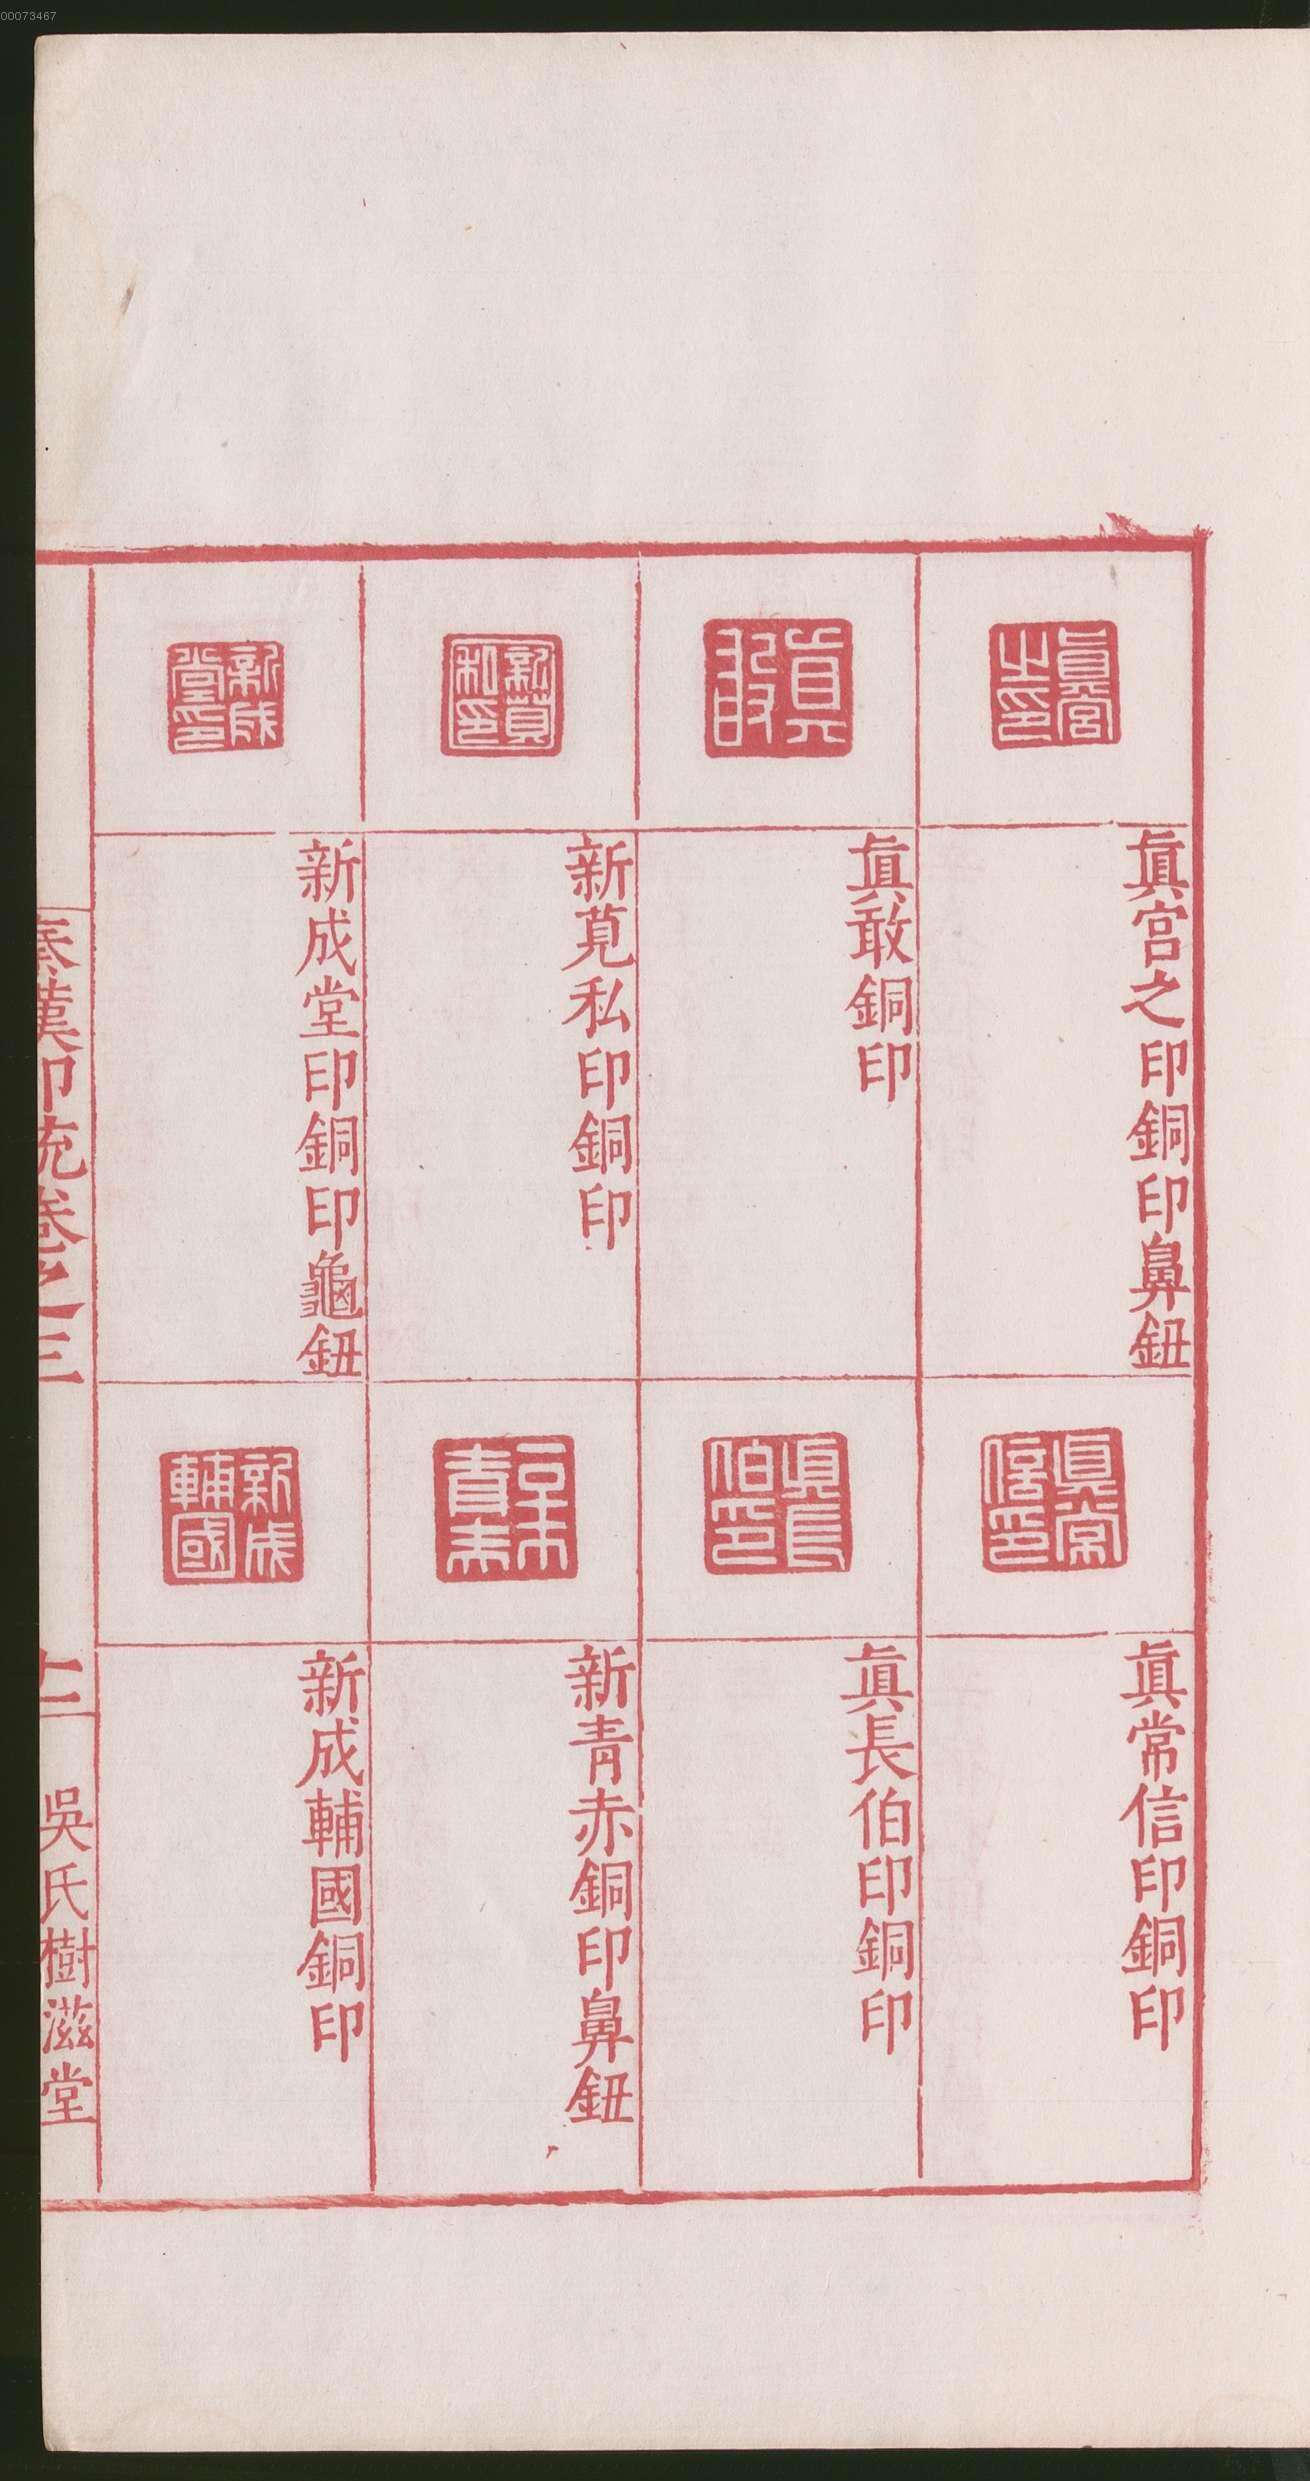 00073467
眞宫之印銅印鼻鈕
眞敢銅印
新莧私印銅印
新成堂印銅印龜鈕
眞常信印銅印
眞長伯印銅印
新青赤銅印鼻鈕
新成輔國銅印
秦漢印統卷之三
十二
吳氏樹滋堂